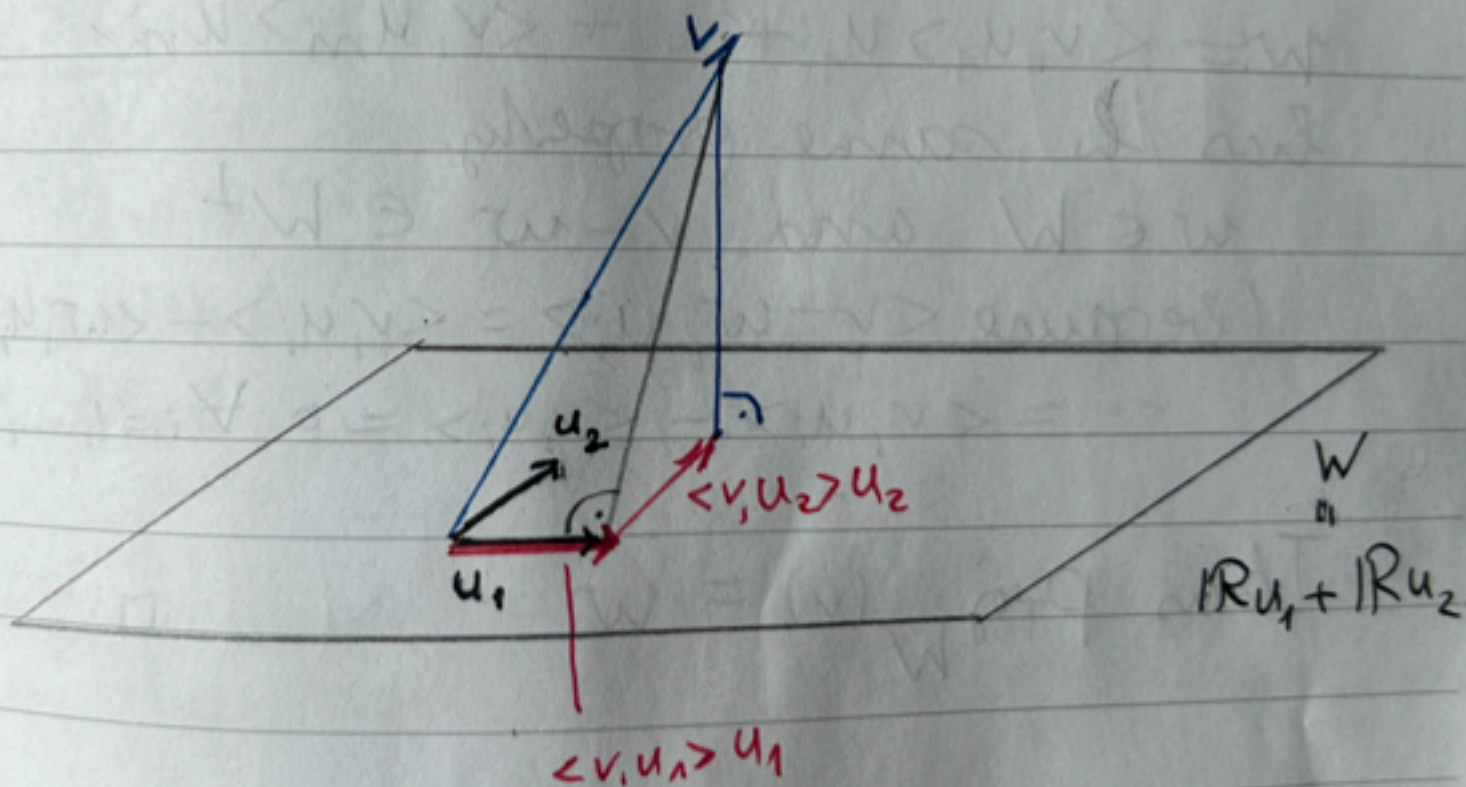 v
u₂
<v,u₂>u₂
W
=
ℝu₁ + ℝu₂
u₁
<v,u₁>u₁